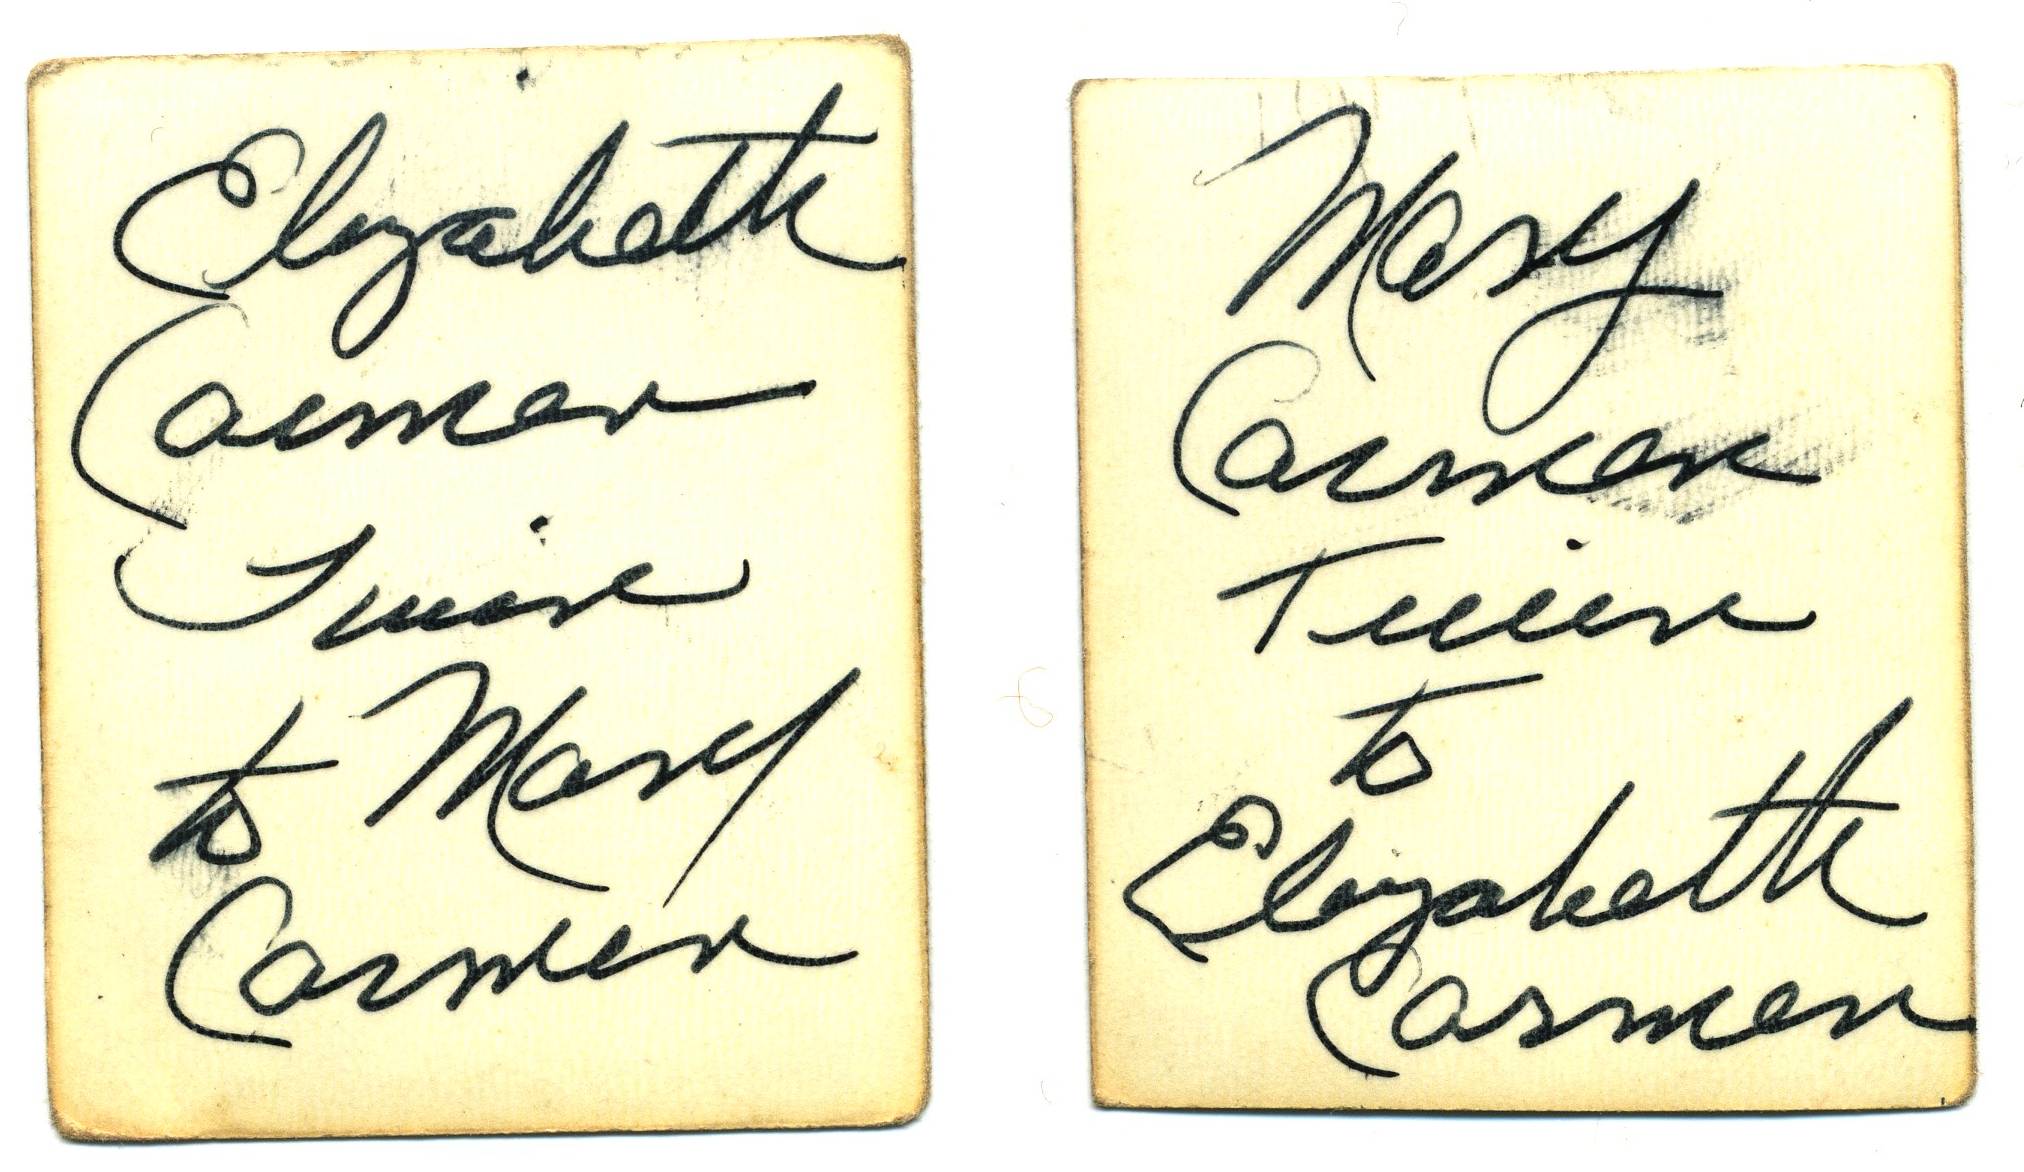 Elizabeth
Carmen
Twin
to Mary
Carmen
Mary
Carmen
Twin
to
Elizabeth
Carmen